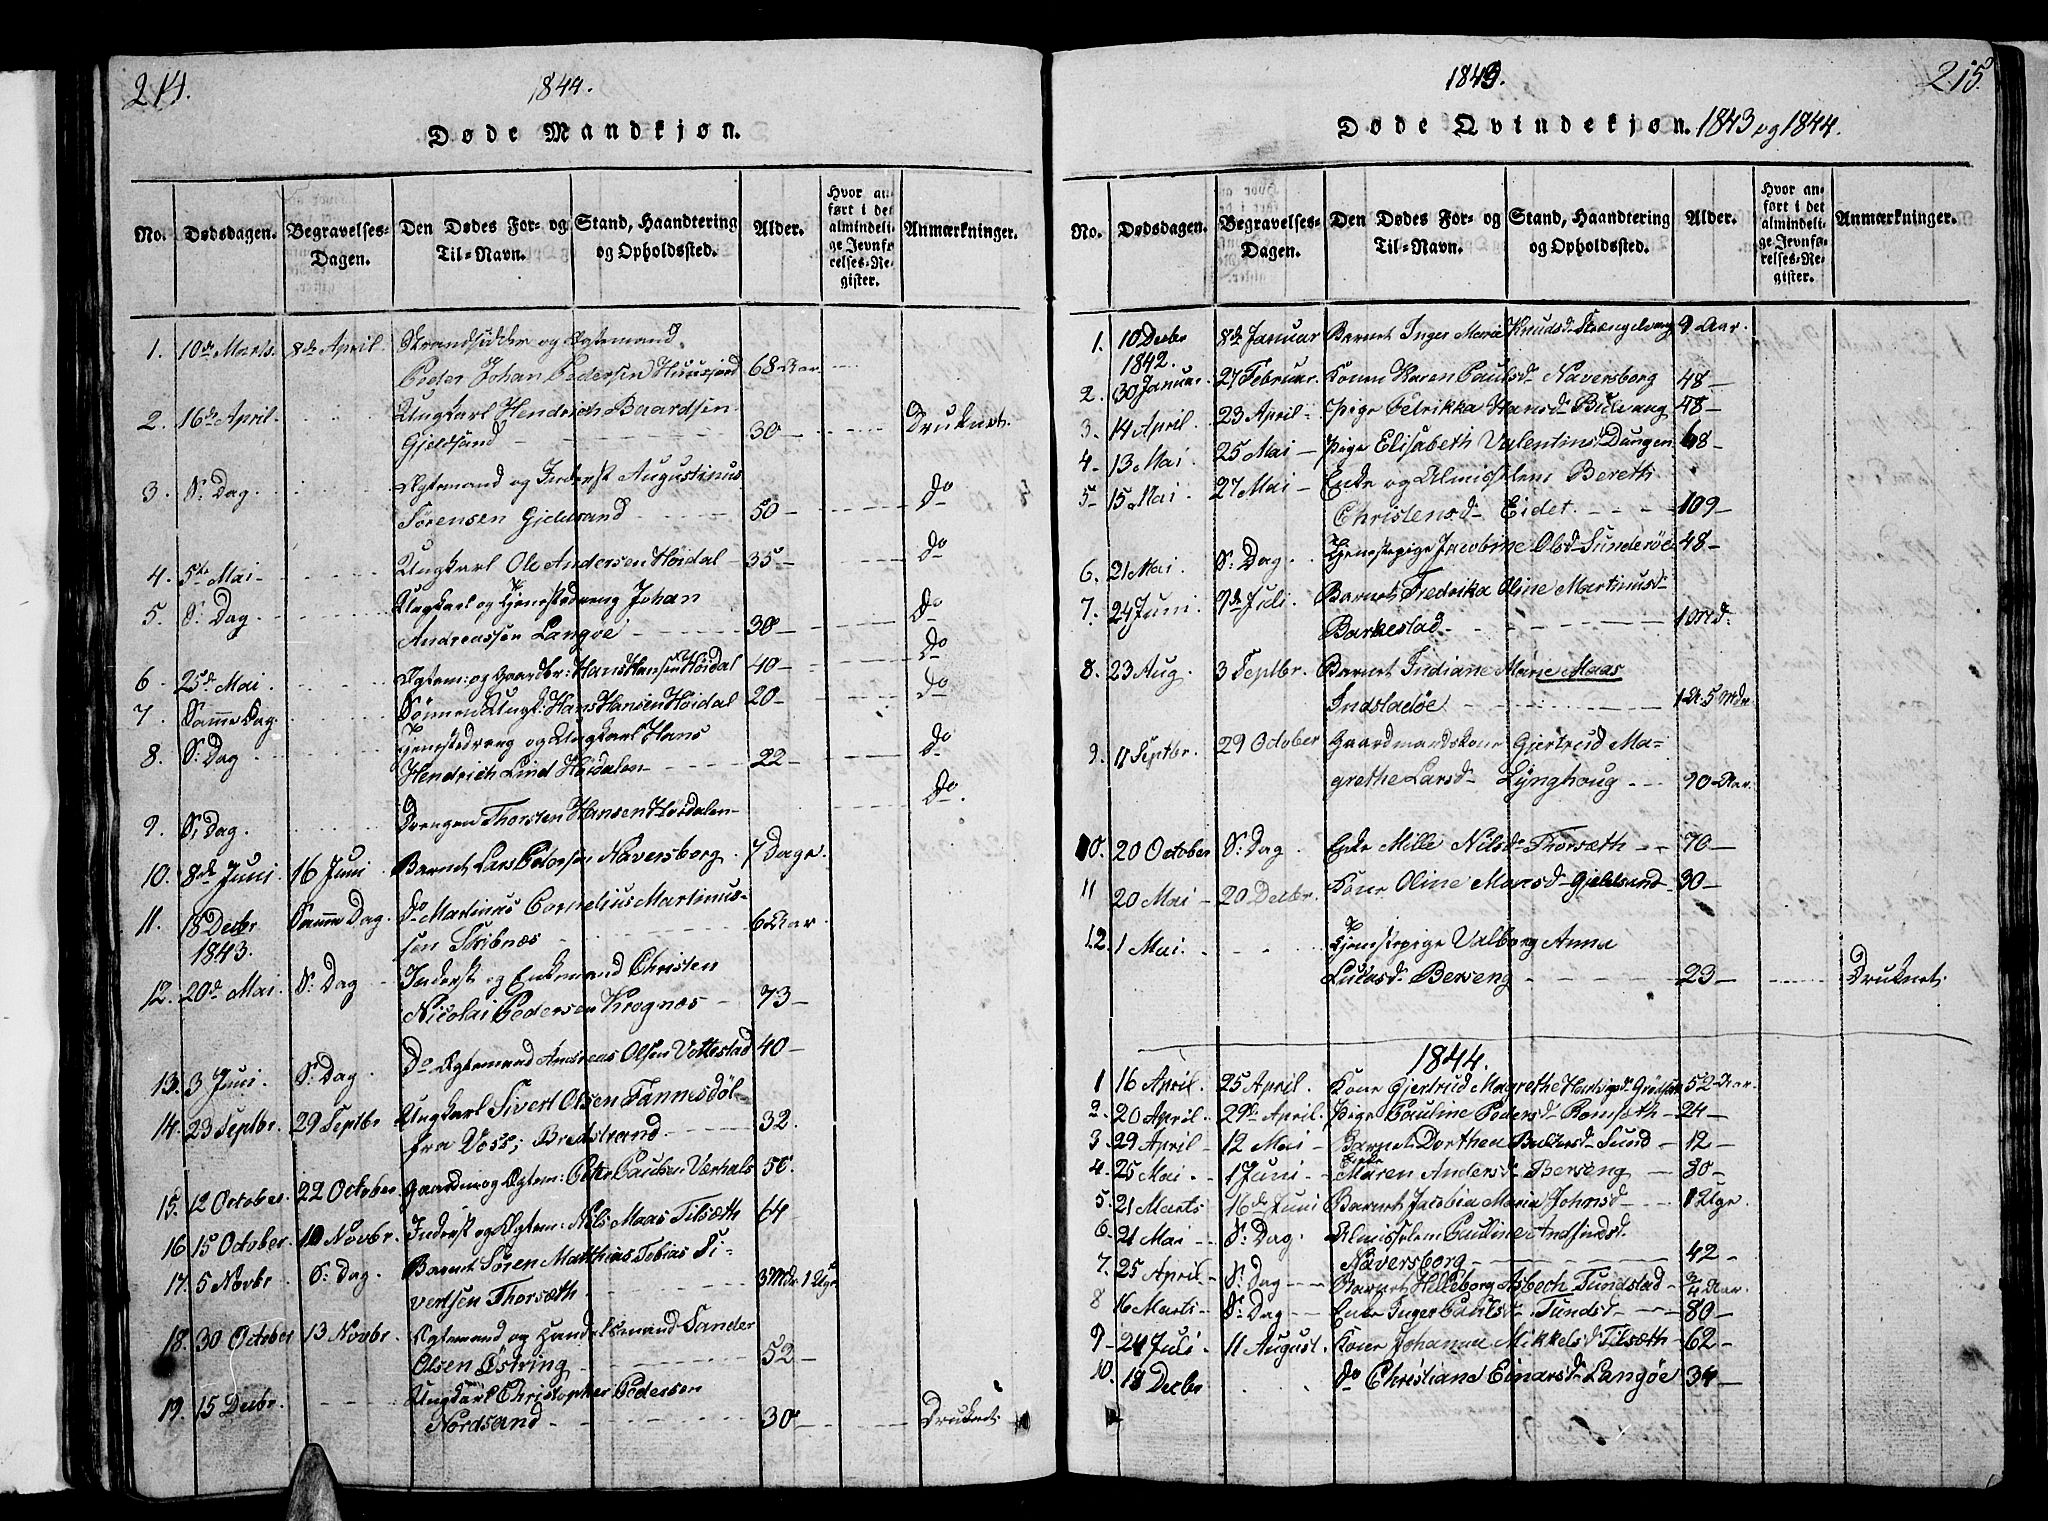 214.
1844.
Døde Mandkjøn.
No. Dødsdagen. Begravelses-Dagen. Den Dødes For- og Til-Navn. Stand, Haandtering og Opholdssted. Alder. Hvor anført i det almindelige Jevnførelses-Register. Anmærkninger.
1. 10de Marts. 8de April. Strandsidder og Ægtemand
Peder Johan Pedersen Huusjord 68 Aar
2. 16de April. Ungkarl Hendrich Baardsen
Gjeldsand 30 Druknet.
3. S: Dag. Ægtemand og Inderst Augustinus
Sørensen Gjeldsand 50 Do
4. 5te Mai Ungkarl Ole Andersen Høidal 35 Do
5. S: Dag Ungkarl og Tjenestedreng Johan
Andreassen Langøe 30 Do
6. 25de Mai Ægtem: og Gaardbr: Hans Hansen Høidal 40 Do
7. Samme Dag. Sønnen Ungk: Hans Hansen Høidal 20 Do
8. S: Dag Tjenestedreng og Ungkarl Hans
Hendrich Lind Høidalen 22 Do
9. S: Dag. Drengen Thorsten Hansen Høidalen Do.
10. 8de Juni 16 Juni Barnet Lars Pedersen Naversborg. 7 Dage.
11. 18 Decbr 1843. Samme Dag. Do Martinas Cornelius Martinus-
sen Skibnæs 6 Aar
12. 20de Mai. S: Dag Inderst og Enkemand Christen
Nicolai Pedersen Krognæs 73
13. 3 Juni. S: Dag. Do Ægtemand Andreas Olsen Vottestad 40
14. 23 Septbr. 29 Septbr Ungkarl Sivert Olsen Tannesdöl
fra Voss; Bredstrand 32.
15. 12 October. 22 October Gaardm: og Ægtem: Peter Paulsen Værhals 50.
16 15 October. 10 Novbr. Inderst og Ægtem: Nils Maas Tilsæth 64
17. 5 Novbr S: Dag. Barnet Søren Matthias Tobias Si-
vertsen Thorsæth 3 Mdr 1 Uge
18. 30 October 13 Novbr. Ægtemand og Handelsmand Sander
Olsen Østring 52
19. 15 Decbr. Ungkarl Christopher Pedersen
Nordsand 30 Druknet.
1843.
215.
Døde Qvindekjøn. 1843 og 1844.
No. Dødsdagen. Begravelses-Dagen. Den Dødes For- og Til-Navn. Stand, Haandtering og Opholdssted. Alder. Hvor anført i det almindelige Jevnførelses-Register. Anmærkninger.
1. 10 Decbr 1842. 8de Januar Barnet Inger Marie Knudsd. 9 Aar.
2. 30 Januar. 27 Februar. Konen Karen Paulsd. Naversborg 48
3. 14 April. 23 April Pige Fedrikka Hansd. 48
4. 13 Mai. 25 Mai Pige Elisabeth Valentinsd. Dungen 68
5 15 Mai. 27 Mai Enke og Almisselem Bereth
Christensd. Eidet. 109
6. 21 Mai. S: Dag. Tjenestepige Jacobine Olsd. Sunderøe 48
7. 24 Juni. 9de Juli. Barnet Fredrika Oline Martinusd.
Barkestad 1 Md.
8. 23 Aug. 3 Septbr. Barnet Indiane Marie Maas
Indstadøe 1 A. 5 Mdr
9. 11 Septbr. 29 October Gaardmandskone Gjertrud Ma-
grethe Larsd. Lynghoug 90 Aar.
10. 20 October S: Dag. Enke Mille Nilsd. Thorsæth 70
11 20 Mai 20 Decbr. Kone Oline Monsd. Gjeldsand 30
12. 1 Mai. Tjenestepige Valborg Anna
Lucasd. Berseng 23 Druknet.
1844.
1 16 April. 25 April. Kone Gjertrud Magrethe Hartvigsd. 52 Aar.
2. 20 April. 29de April. Pige Pauline Pedersd. Romsæth 24
3. 29 April 12 Mai Barnet Dorthea Sund 12
4. 25 Mai 1 Juni Enke Maren Andersd. Berseng 30
5. 21 Marts 16de Juni Barnet Jacobia Maria Johnsd. 1 Uge.
6. 21 Mai S: Dag. Almisselem Pauline Andfindsd.
Naversborg 42
7. 25 April S: Dag Barnet Helleborg Asbech Tundstad 3/4 Aar.
8 16 Marts S: Dag Enke Inger Paulsd. Tundst. 80
9 24 Juli 11 August. Kone Johanna Mikkelsd. Tilsæth 62
10. 18 Decbr Do Christiane Einarsd. Langøe 34